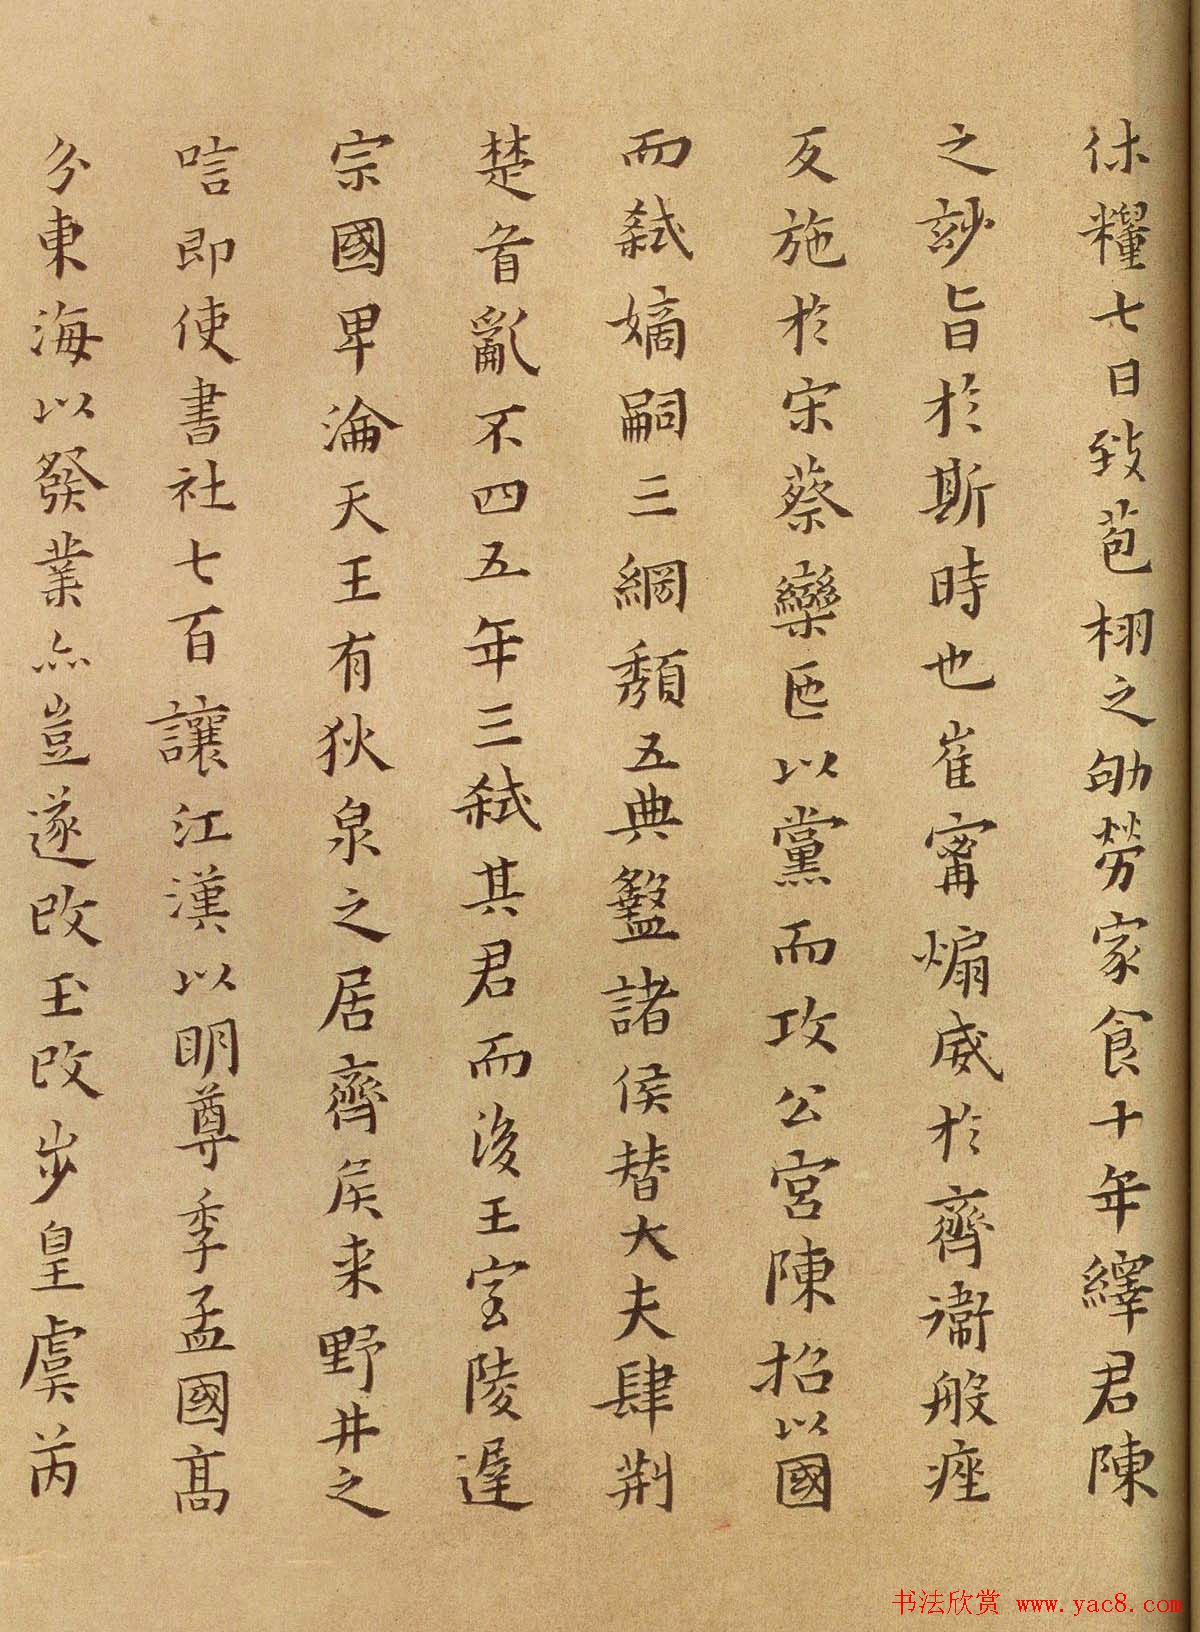 休糧七日致苞栩之劬勞家食十年繹君陳
之訬旨於斯時也崔寗煽威於齊衞般痤
反施於宋蔡欒㔷以黨而攻公宮陳招以國
而弑嫡嗣三綱頽五典盭諸侯替大夫肆荆
楚首亂不四五年三弑其君而後王室陵遲
宗國卑淪天王有狄泉之居齊矦来野井之
唁即使書社七百讓江漢以明尊季孟國高
分東海以發業亦豈遂改玉改步皇虞芮
书法欣赏 www.yac8.com